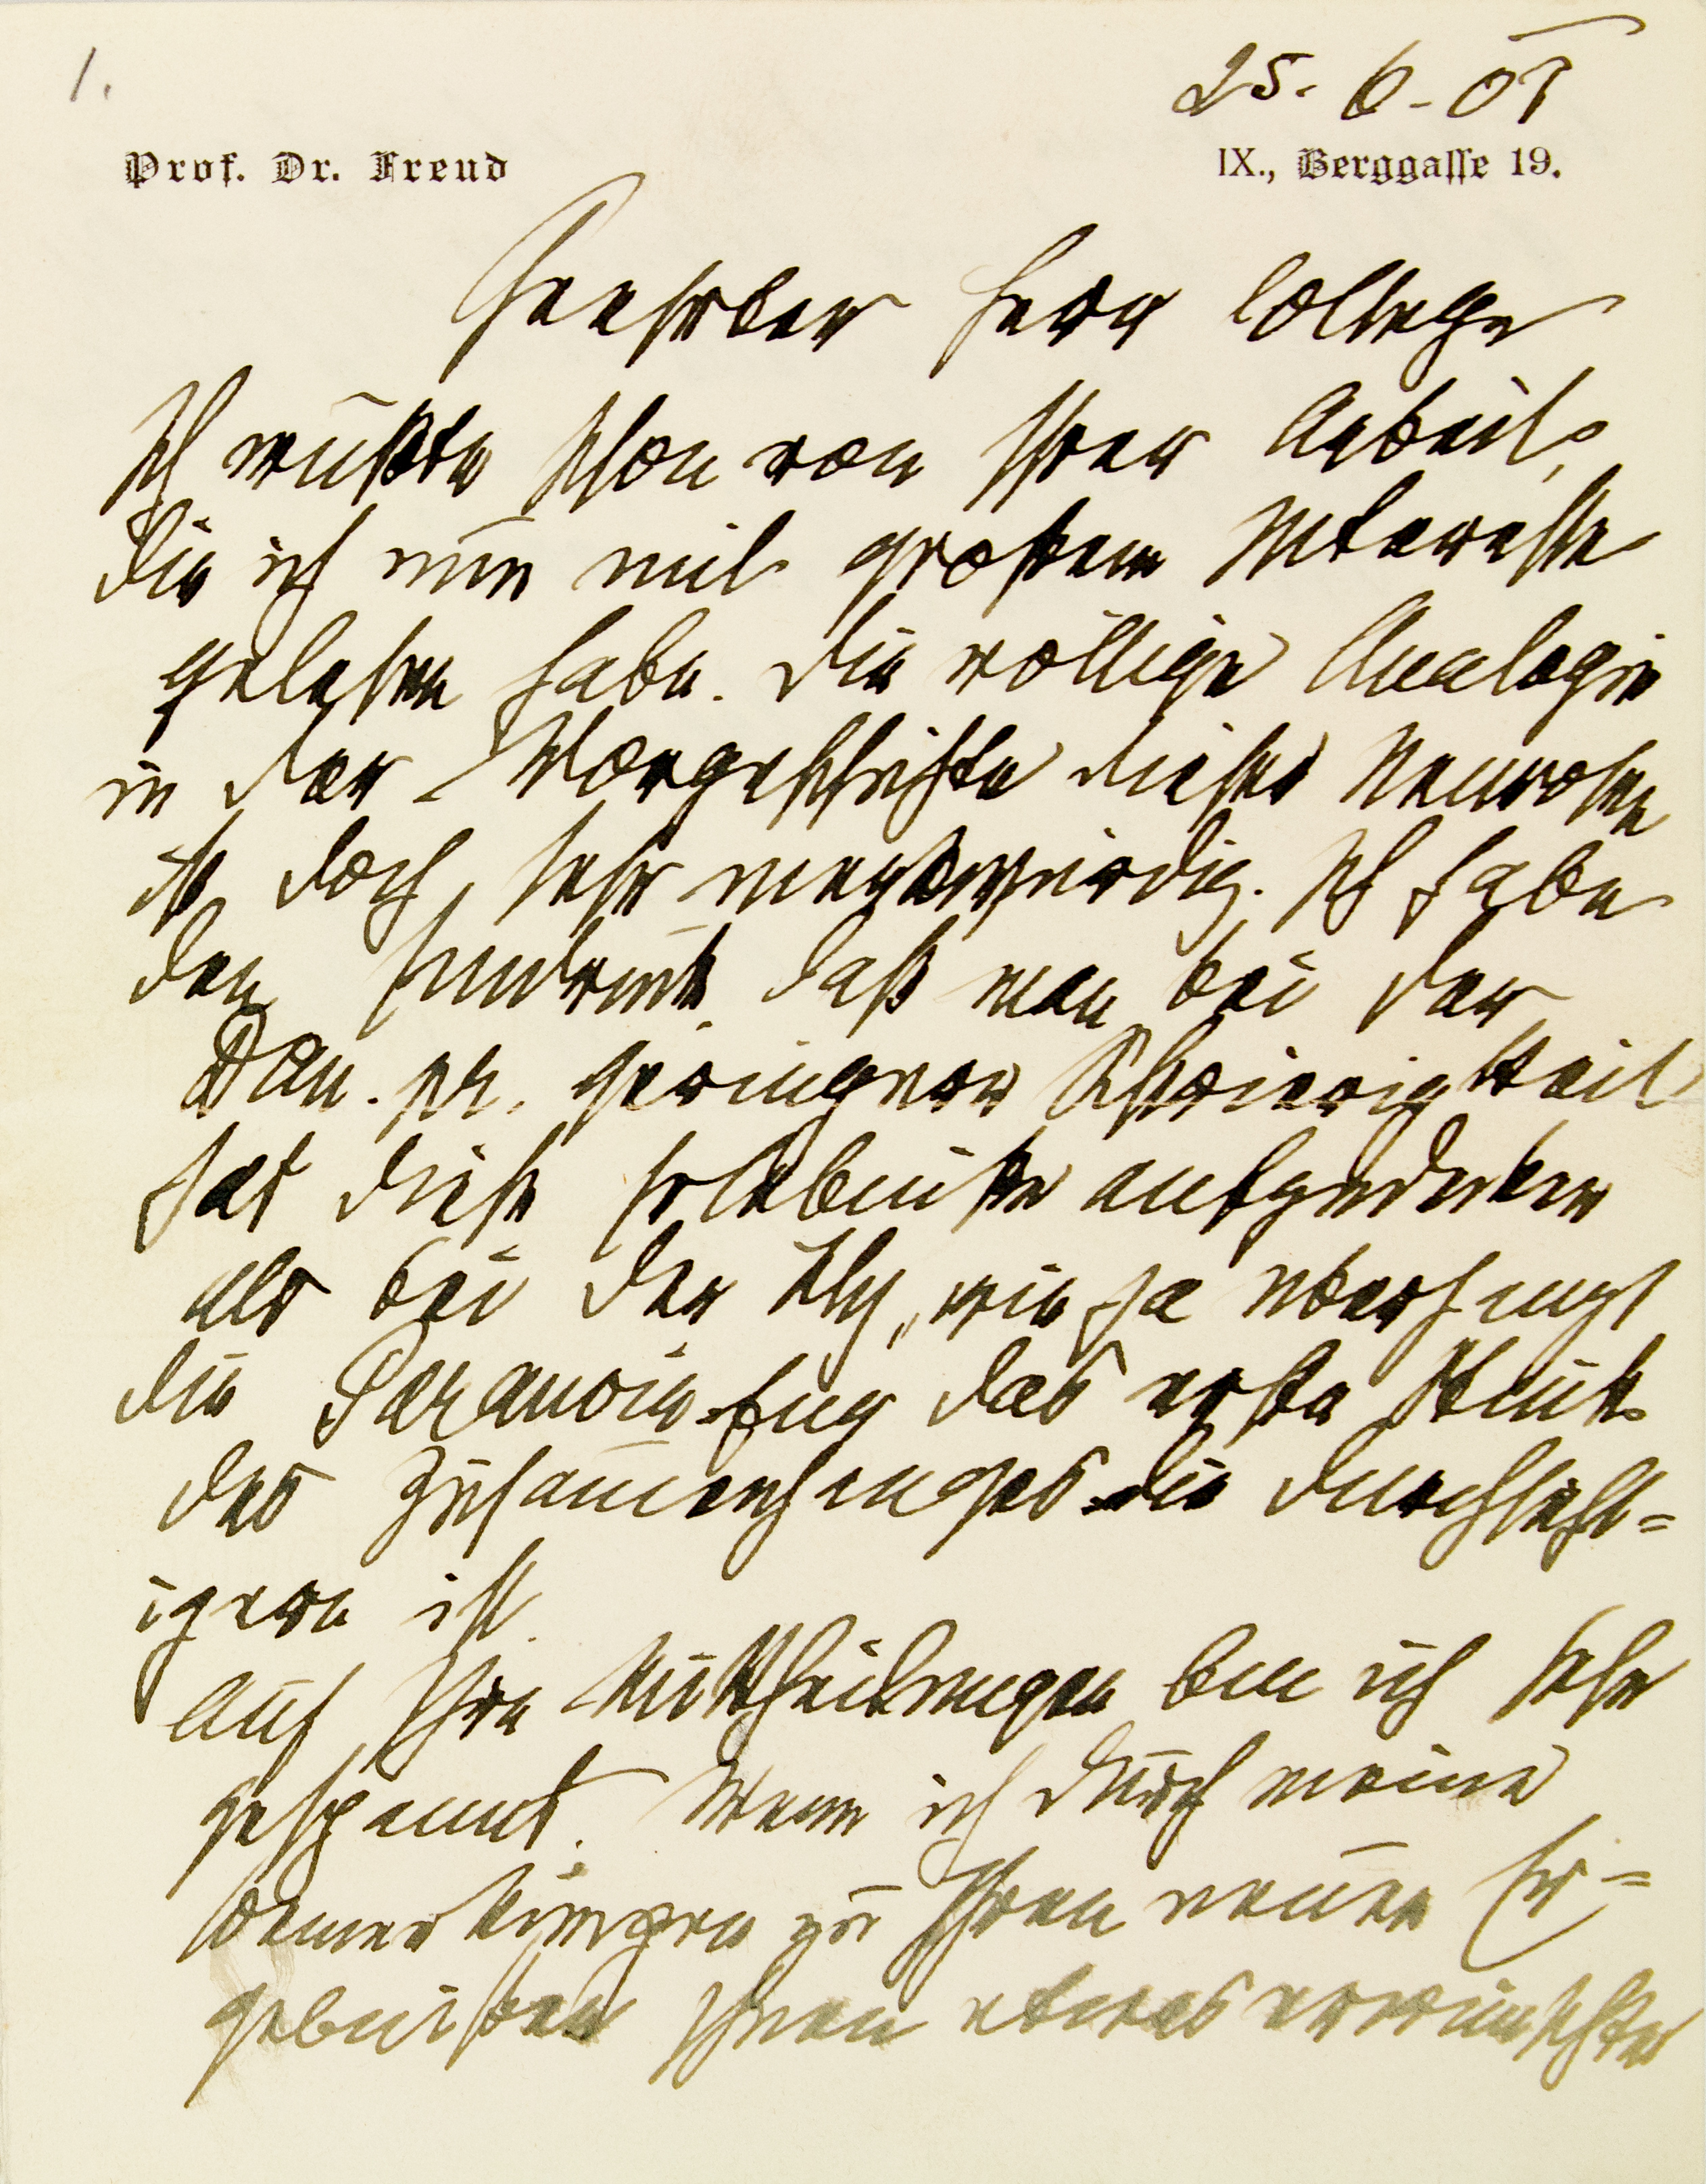 1.
25. 6. 07
Prof. Dr. Freud
IX., Berggasse 19.
Geehrter Herr College
Ich wußte schon von Ihrer Arbeit,
die ich nun mit großem Interesse
gelesen habe. Die völlige Analogie
in der Vorgeschichte dieser Neurosen
ist doch sehr merkwürdig. Ich habe
den Eindruck, daß man bei der
Dem. pr. geringere Schwierigkeit
hat diese Erlebnisse aufzudecken
als bei der Hy, wie ja überhaupt
die Paranoia das erste Stück
des Zusammenhanges die durchsicht=
igere ist.
Auf Ihre Mittheilungen bin ich sehr
gespannt. Wenn ich durch meine
Bemerkungen zu Ihren neuen Er=
gebnissen Ihnen etwas erwünschtes